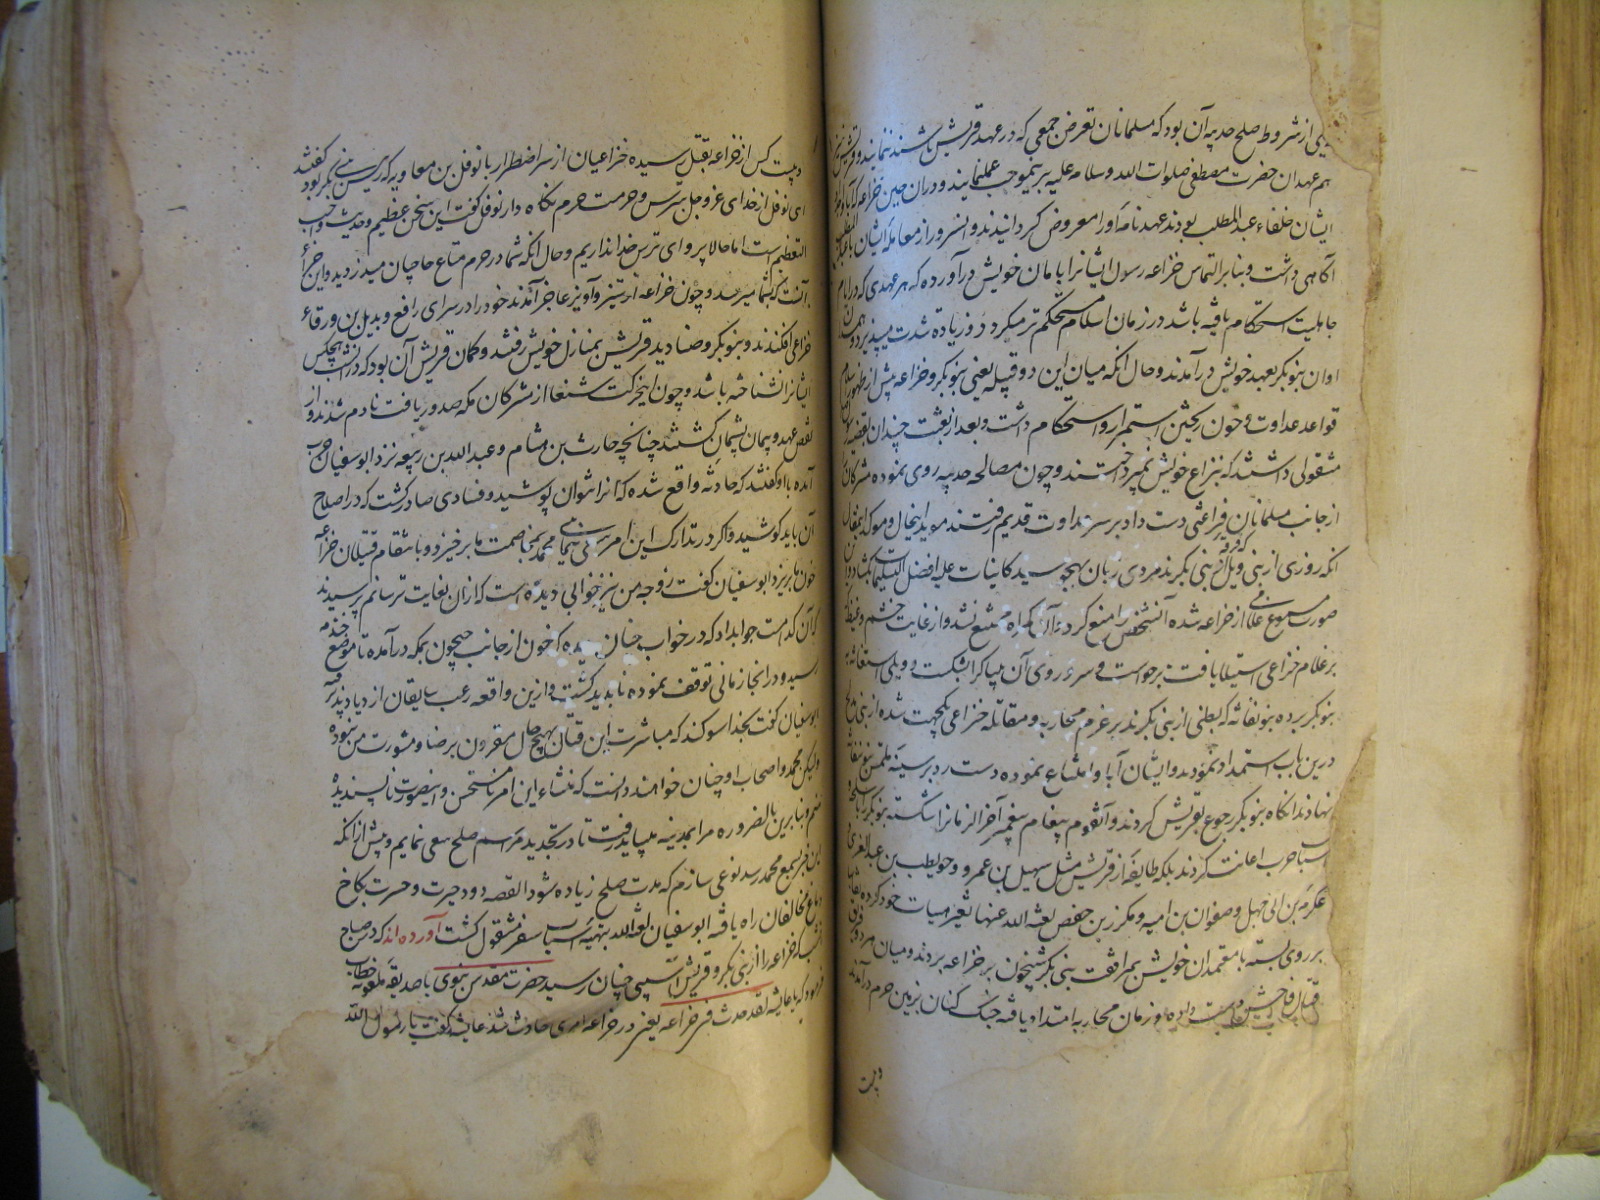 یکی از شروط صلح حدیبیه آن بود که مسلمانان تعرض جمعی که در عهد قریش باشند ننمایند و قریش نیز
هم عهدان حضرت مصطفی صلوات الله و سلامه علیه برینموجب عمل نمایند و دران حین خزاعه که آبا
ایشان خلفاء عبد المطلب بودند عهد نامه او را معروض گردانیدند و آنسرور از معامله ایشان با عبد المطلب
آگاهی داشت و بنابر التماس خزاعه رسول ایشانرا بامان خویش درآورده که هر عهدی که در ایام
جاهلیت استحکام یافته باشد در زمان اسلام مستحکم تر میگردد و زیاده شدت میپذیرد
اوان بنو بکر بعهد خویش درآمدند و حال آنکه میان این دو قبیله یعنی بنو بکر و خزاعه پیش از ظهور اسلام
قواعد عداوت و خون ریختن استمرار و استحکام داشت و بعد از بعثت چندان بقضیه
مشغولی داشتند که بنزاع خویش نمیپرداختند و چون مصالحه حدیبیه روی نموده مشرکان
از جانب مسلمانان فراغتی دست داد بر سر عداوت قدیم رفتند موید اینحال و موکد اینمقال
آنکه روزی از بنی بکر مردی زبان بهجو سید کاینات علیه افضل التسلیمات بگشاد و این
صورت مسموع غلامی از خزاعه شده آنشخص را منع کرد ممتنع نشد و از غایت خشم و غیظ
بر غلام خزاعی استیلا یافت برجوست و سر و روی آن بیباک را بشکست و ویلی استغاثه
بنو بکر برده بنو نفاثه که بطنی از بنی بکرند بر عزم محاربه و مقاتله خزاعی یکجهت شده از بنی مدلج
درین باب استمداد نمودند و ایشان ابا و امتناع نموده دست رد بر سینه ملتمس بنو نفاثه
نهادند آنگاه بنو بکر رجوع بقریش کردند و آنقوم پیغام پیغمبر آخر الزمان را شکسته بنو بکر را
اسباب حرب اعانت کردند بلکه طایفه از قریش مثل سهیل بن عمرو و حویطب بن عبد العزی
عکرمه بن ابی جهل و صفوان بن امیه و مکرز بن حفص لعنه الله عنها تغیر هیات خود کرده
بر روی بسته با معتمدان خویش بمرافقت بنی بکر شبیخون بر خزاعه بردند و میان هر دو فریق
قتال فاحش دست داده و زمان محاربه امتداد یافته جنگ کنان بزمین حرم درآمدند
و بیست
و بیست کس از خزاعه بقتل رسیده خزاعیان از سر اضطرار با نوفل بن معاویه که رئیس بنی بکر بود گفتند
ای نوفل از خدای عز و جل بترس و حرمت حرم نگاه دار نوفل گفت این سخن عظیم و حدیث واجب
التعظیم است اما حالا پروای ترس خدا نداریم و حال آنکه شما در حرم متاع حاجیان میدزدید و این جزای
آنست که بشما میرسد و چون خزاعه از ستیز و آویز عاجز آمدند خود را در سرای رافع و بدیل بن ورقاء
خزاعی افکندند و بنو بکر و صنادید قریش بمنازل خویش رفتند و گمان قریش آن بود که در آنشب هیچکس
ایشانرا نشناخته باشد و چون این حرکت شنعا از مشرکان مکه صدور یافت نادم شدند و از
نقض عهد و پیمان پشیمان گشتند چنانچه حارث بن هشام و عبد الله بن ربیعه نزد ابو سفیان حرب
آمده با او گفتند که حادثه واقع شده که آنرا نتوان پوشید و فسادی صادر گشت که در اصلاح
آن باید کوشید و اگر در تدارک این امر سعی ننمایی محمد بمخاصمت ما برخیزد و بانتقام قتیلان خزاعه
خون ما بریزد ابو سفیان گفت زوجه من نیز خوابی دیده است که ازان بغایت ترسانم پرسیدند
که آن کدامست جوابداد که در خواب چنان دیده که خون از جانب حجون بمکه درآمده تا موضع خندمه
رسید و در آنجا زمانی توقف نموده ناپدید گشت و ازین واقعه رعب سابقان ازدیاد پذیرفته
ابو سفیان گفت بخدا سوگند که مباشرت این قتال بهیچ حال مقرون برضا و مشورت من نبوده
ولیکن محمد و اصحاب او چنان خواهند دانست که منشاء این امر نامستحسن و اینصورت ناپسندیده
منم و بنابرین بالضروره مرا بمدینه میباید رفت تا در تجدید مراسم صلح سعی نمایم و پیش از آنکه
این خبر بسمع محمد رسد نوعی سازم که مدت صلح زیاده شود القصه دود حیرت و حسرت بکاخ
دماغ مخالفان راه یافته ابو سفیان لعنه الله بتهیه اسباب سفر مشغول گشت آورده اند که در صباح
آنشب که خزاعه را از بنی بکر و قریش آسیبی چنان رسید حضرت مقدس نبوی با صدیقه عفیفه خطاب
فرمود که یا عایشه لقد حدث فی خزاعه یعنی در خزاعه امری حادث شد عایشه گفت یا رسول الله